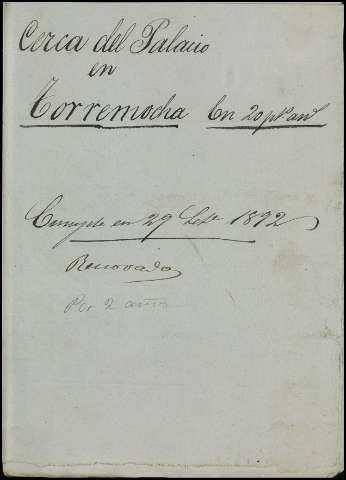 Cerca del Palacio
en
Torremocha En 20 pts an.
Cumple en 29 Sete 1892
Renovado
Por 2 años